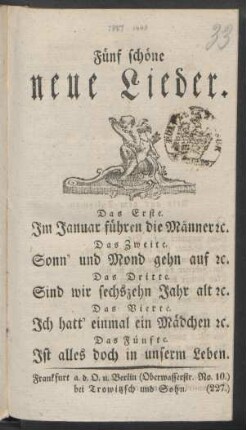 33
Fünf schöne
neue Lieder.
Das Erste.
Im Januar führen die Männer ꝛc.
Das Zweite.
Sonn' und Mond gehn auf ꝛc.
Das Dritte.
Sind wir sechszehn Jahr alt ꝛc.
Das Vierte.
Ich hatt' einmal ein Mädchen ꝛc.
Das Fünfte.
Ist alles doch in unserm Leben.
Frankfurt a. d. O. u. Berlin (Oberwasserstr. No. 10.)
bei Trowitzsch und Sohn. (227.)